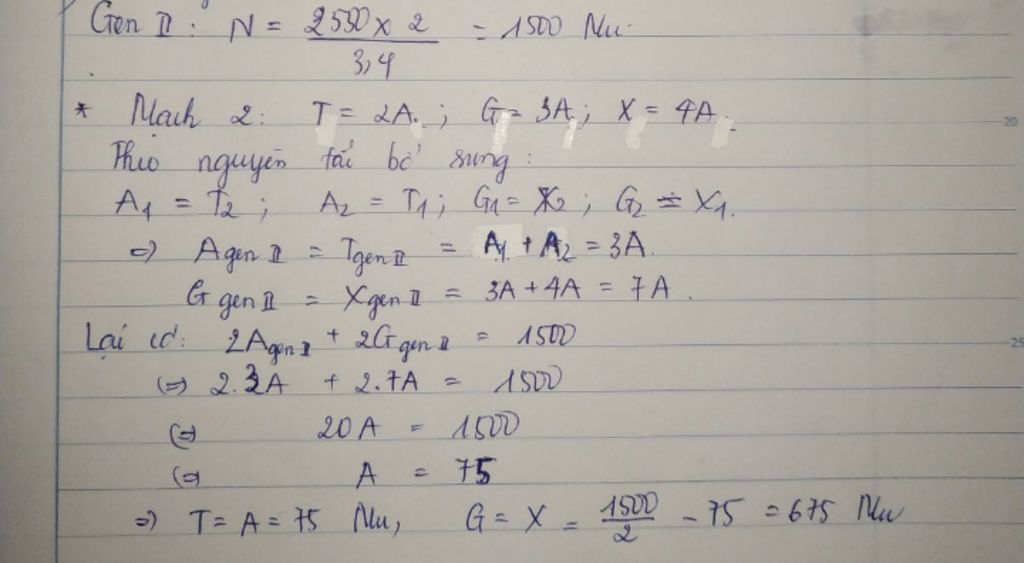 Gen II : N = 2550 x 2 / 3,4 = 1500 Nu.
* Mạch 2: T = 2A ; G = 3A ; X = 4A.
Theo nguyên tắc bổ sung :
A1 = T2 ; A2 = T1 ; G1 = X2 ; G2 = X1.
=> A gen II = T gen II = A1 + A2 = 3A.
G gen II = X gen II = 3A + 4A = 7A.
Lại có: 2A gen II + 2G gen II = 1500
<=> 2.3A + 2.7A = 1500
<=> 20A = 1500
<=> A = 75
=> T = A = 75 Nu, G = X = 1500/2 - 75 = 675 Nu
20
25